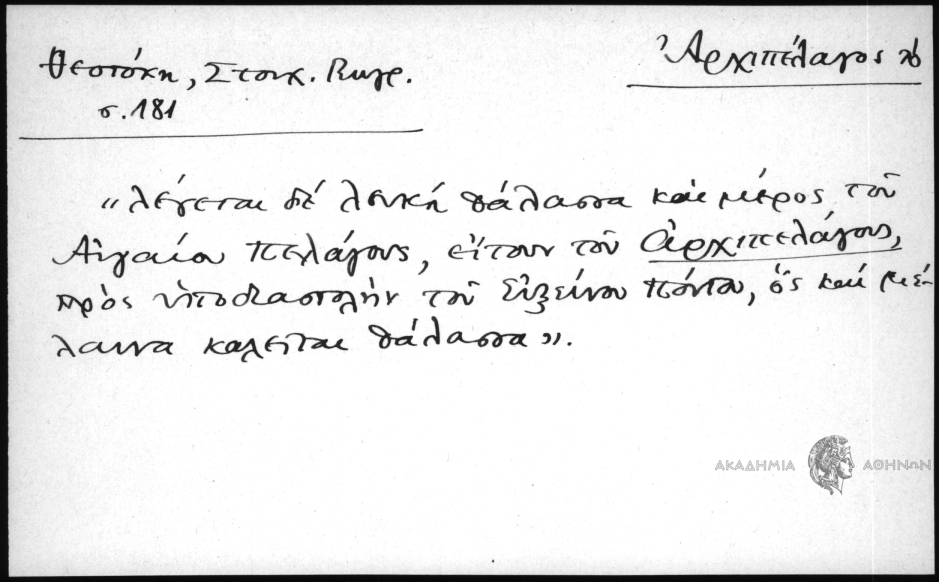 Θεοτόκη, Στοιχ. Γεωγρ.
σ. 181
Ἀρχιπέλαγος τό
«λέγεται δέ λευκή θάλασσα καί μέρος τοῦ
Αἰγαίου πελάγους, εἴτουν τοῦ ἀρχιπελάγους,
πρός ὑποδιαστολήν τοῦ Εὐξείνου πόντου, ὅς καί μέ-
λαινα καλεῖται θάλασσα».
ΑΚΑΔΗΜΙΑ ΑΘΗΝΩΝ